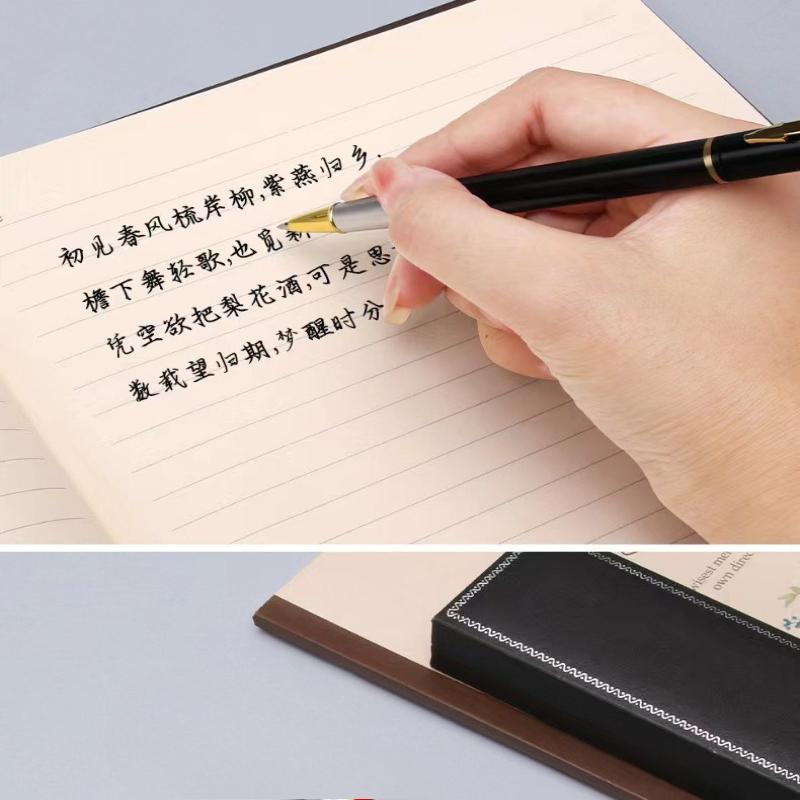 初见春风梳岸柳,紫燕归乡.
檐下舞轻歌,也觅新
凭空欲把梨花酒,可是思
数载望归期,梦醒时分
own direc